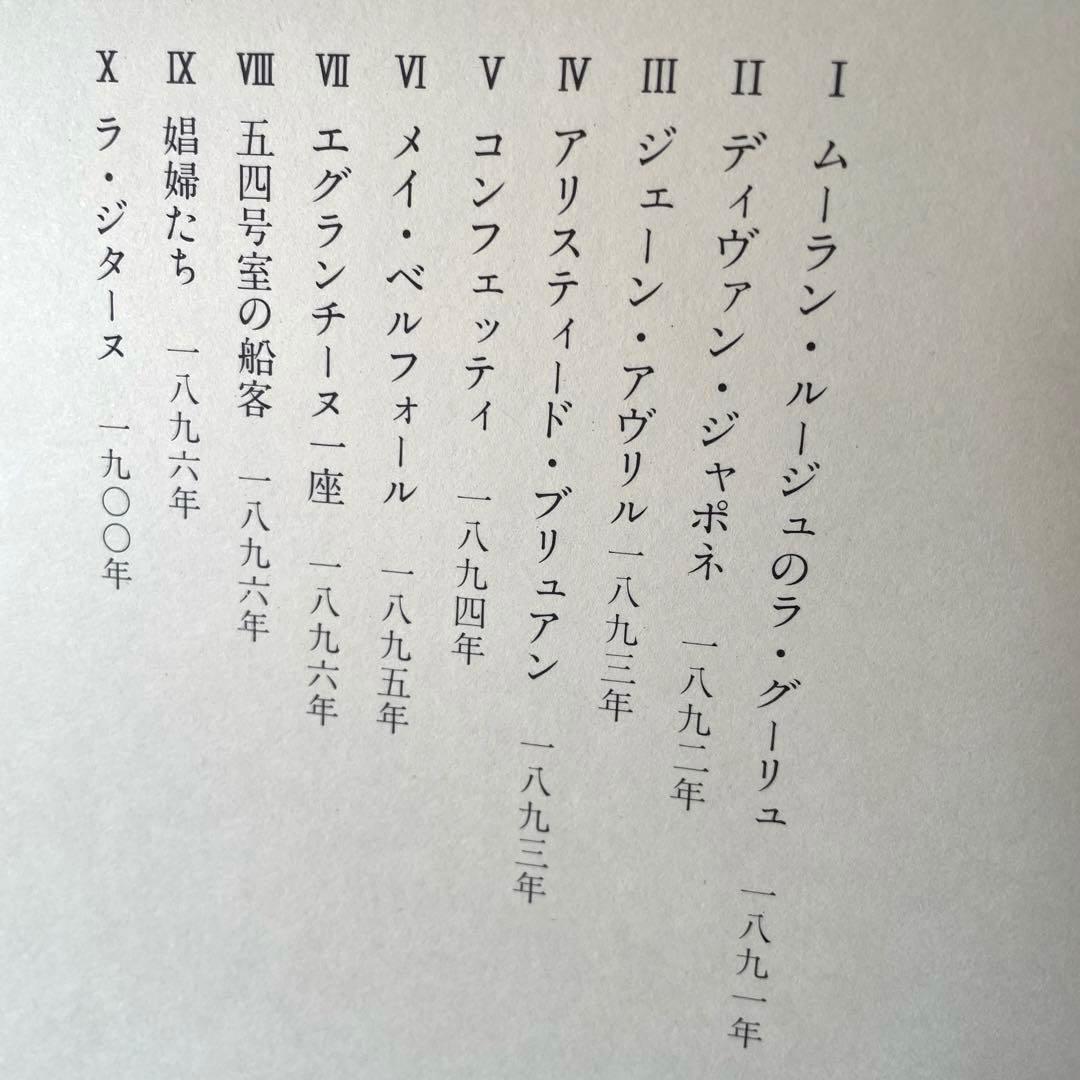 Ⅰ ムーラン・ルージュのラ・グーリュ 一八九一年
Ⅱ ディヴァン・ジャポネ 一八九二年
Ⅲ ジェーン・アヴリル 一八九三年
Ⅳ アリスティード・ブリュアン 一八九三年
Ⅴ コンフェッティ 一八九四年
Ⅵ メイ・ベルフォール 一八九五年
Ⅶ エグランチーヌ一座 一八九六年
Ⅷ 五四号室の船客 一八九六年
Ⅸ 娼婦たち 一八九六年
Ⅹ ラ・ジターヌ 一九〇〇年